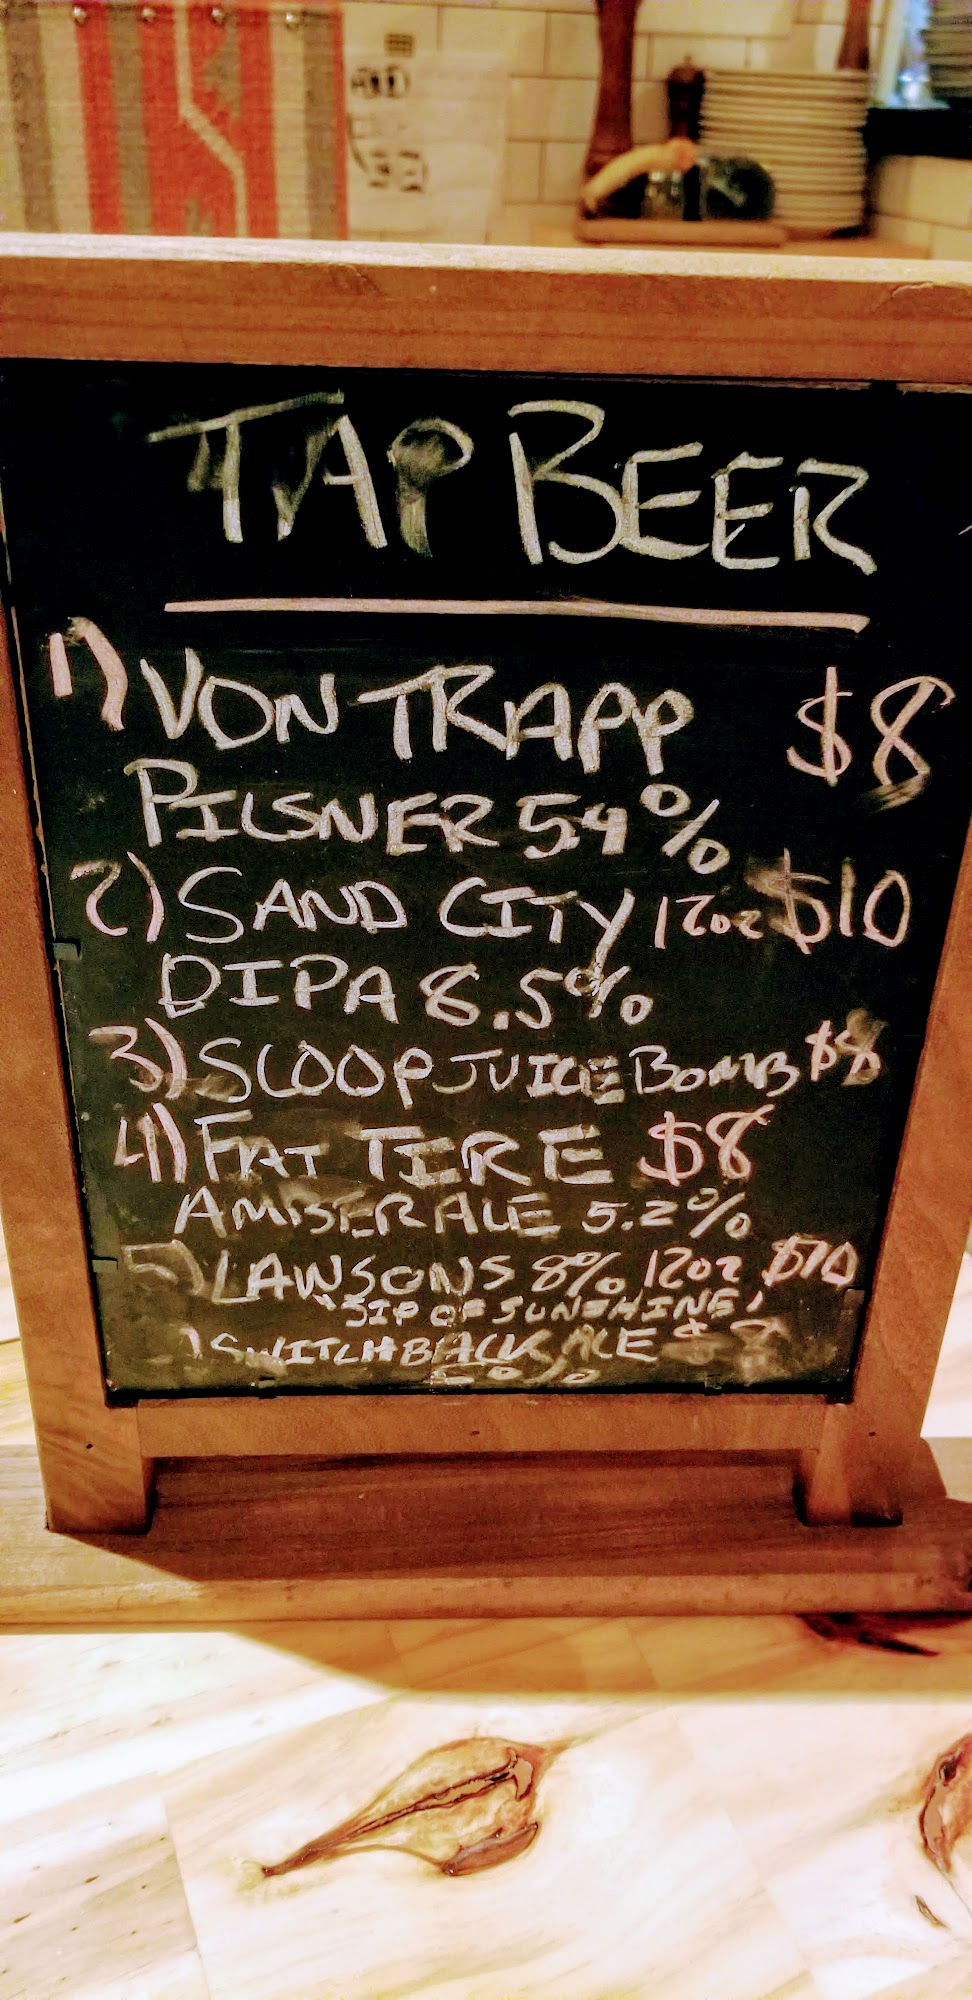 TAP BEER
1) VON TRAPP $8
PILSNER 5.4%
2) SAND CITY 12oz $10
DIPA 8.5%
3) SLOOP JUICE BOMB $8
4) FAT TIRE $8
AMBER ALE 5.2%
5) LAWSONS 8% 12oz $10
"SIP OF SUNSHINE"
SWITCHBACK ALE $